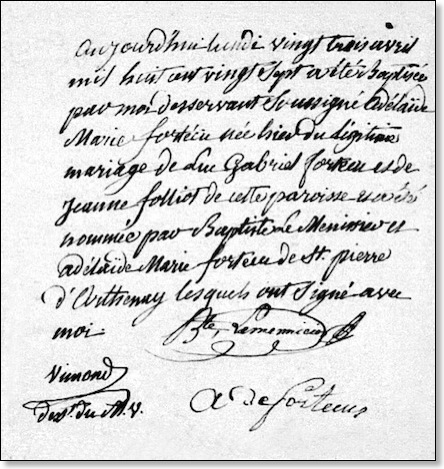 aujourd'hui lundi vingt trois avril
mil huit cent vingt sept a été Baptisée
par moi desservant soussigné adélaïde
Marie fortécu née hier du légitime
mariage de Luc Gabriel fortecu et de
jeanne folliot de cette paroisse et a été
nommée par Baptiste Le Menissier et
adélaïde Marie fortecu de St. pierre
d'Arthenay lesquels ont signé avec
moi.
Bte
Vimond
dest. du M. V.
A de fortecus